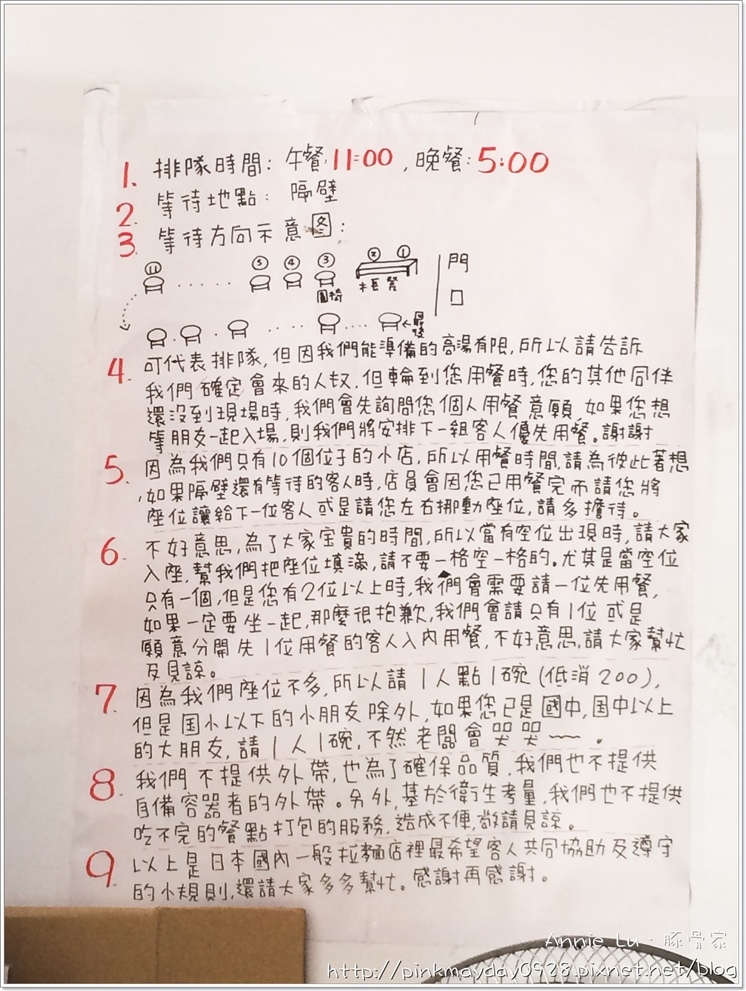 1. 排隊時間: 午餐:11:00 , 晚餐:5:00
2. 等待地點: 隔壁
3. 等待方向示意图:
⑪ ...... ⑤ ④ ③ ② ① 門
圓椅 木長凳 口
最後
4. 可代表排隊,但因我們能準備的高湯有限,所以請告訴
我們確定會來的人奴,但輪到您用餐時,您的其他同伴
還沒到現場時,我們會先詢問您個人用餐意願,如果您想
等朋友一起入場,則我們將安排下一組客人優先用餐。謝謝
5. 因為我們只有10個位子的小店,所以用餐時間,請為彼此著想
,如果隔壁還有等待的客人時,店員會因您已用餐完而請您將
座位讓給下一位客人或是請您左右挪動座位,請多擔待。
6. 不好意思,為了大家宝貴的時間,所以當有空位出現時,請大家
入座,幫我們把座位填滿,請不要一格空一格的。尤其是當空位
只有一個,但是您有2位以上時,我們會需要請一位先用餐,
如果一定要坐一起,那麼很抱歉,我們會請只有1位或是
願意分開先1位用餐的客人入內用餐,不好意思,請大家幫忙
及見諒。
7. 因為我們座位不多,所以請1人點1碗(低消200),
但是国小以下的小朋友除外,如果您已是國中,国中以上
的大朋友,請1人1碗,不然老闆會哭哭~~。
8. 我們不提供外帶,也為了確保品質,我們也不提供
自備容器者的外帶。另外,基於衛生考量,我們也不提供
吃不完的餐點打包的服務,造成不便,敬請見諒。
9. 以上是日本國內一般拉麵店裡最希望客人共同協助及遵守
的小規則,還請大家多多幫忙。感謝再感謝。
Annie Lu · 豚骨家
http://pinkmayday0928.pixnet.net/blog